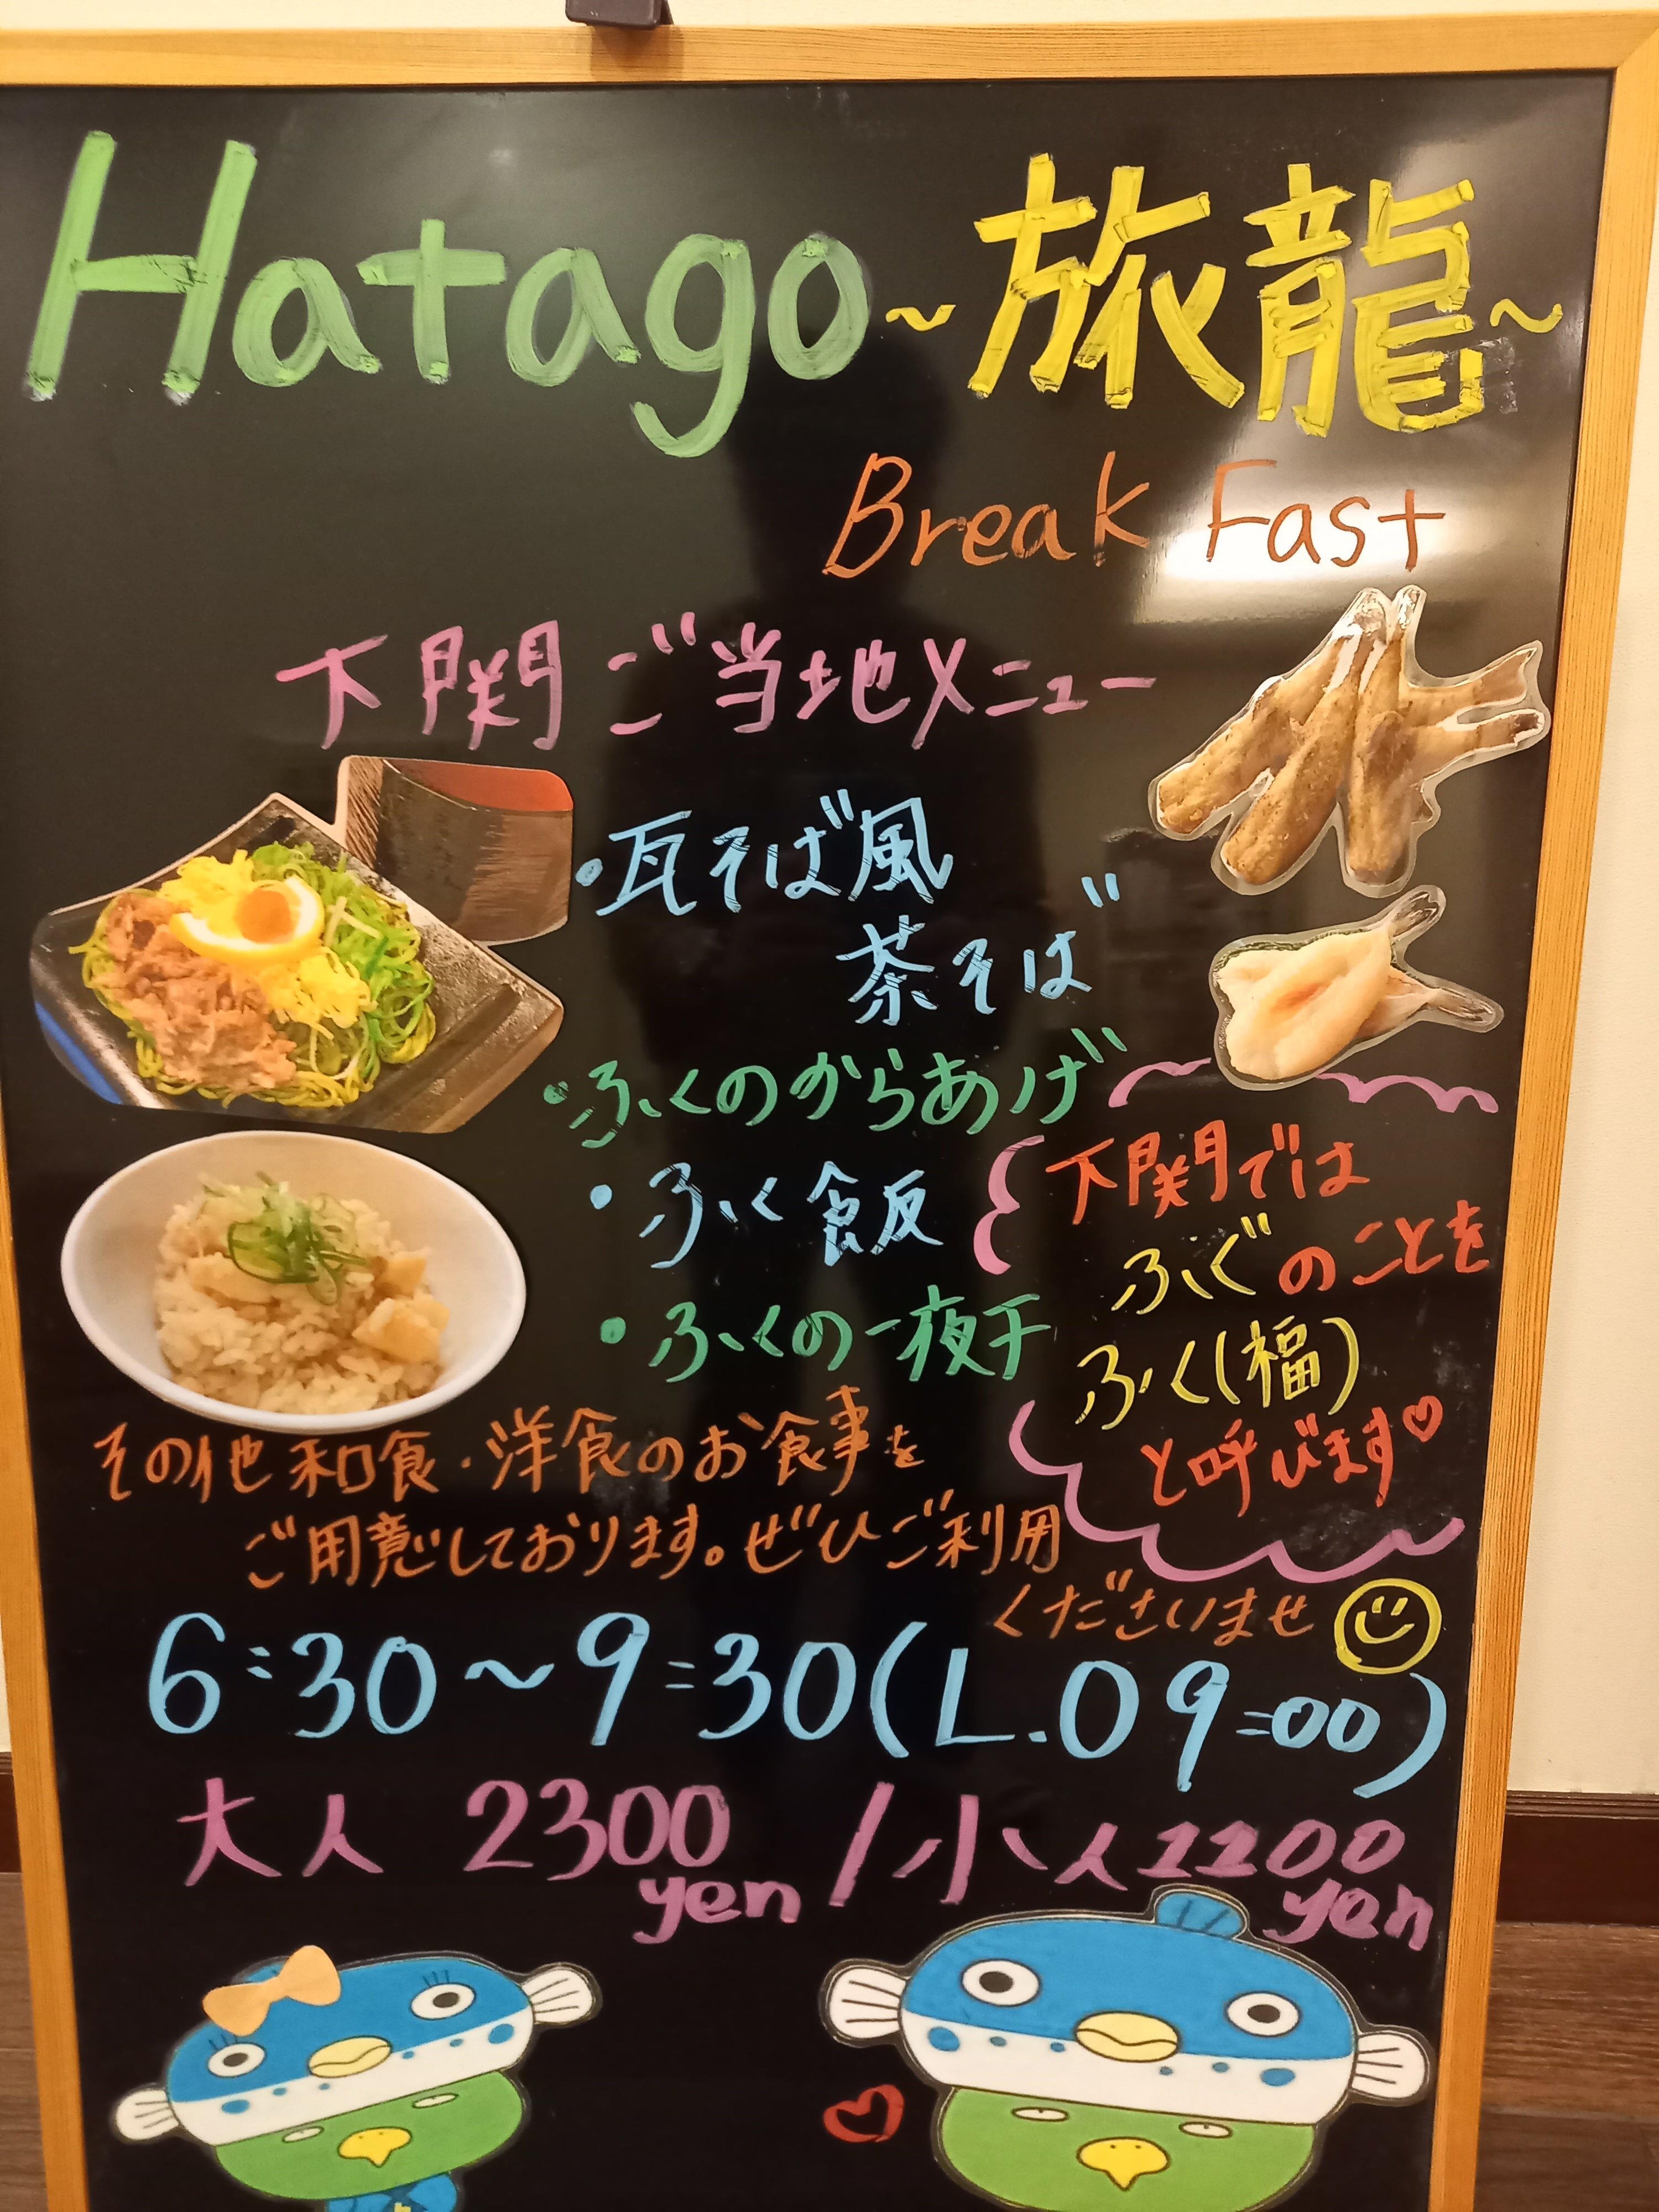 Hatago ~旅龍~
Break Fast
下関ご当地メニュー
・瓦そば風
茶そば
・ふくのからあげ
・ふく飯
・ふくの一夜干
下関では
ふぐのことを
ふく(福)
と呼びます♡
その他和食・洋食のお食事を
ご用意しております。ぜひご利用
くださいませ
6:30~9:30(L.O9:00)
大人 2300yen/小人1200yen